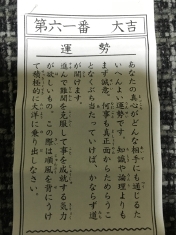 第六一番 大吉
運勢
あなたの真心がどんな相手にも通じるた
いへんよい運勢です。知識や論理よりも
まず誠意。何事も真正面からためらうこ
となくぶち当たっていけば、かならず道
が開けます。
進んで難関を克服して事を成就する気力
が欲しいもの。この際は順風を背にうけ
て積極的に大洋に乗り出しなさい。